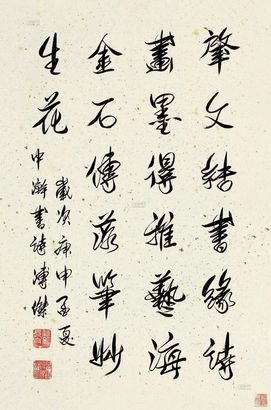 肇文書緣詩
畫墨得藝海
金石傳筆妙
生花
歲次庚申孟夏
中澣書溥傑